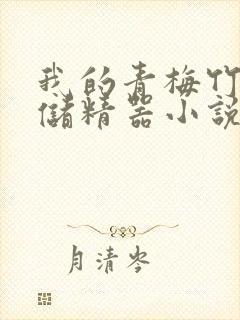 我的青梅竹
儲精器小説
月清岑